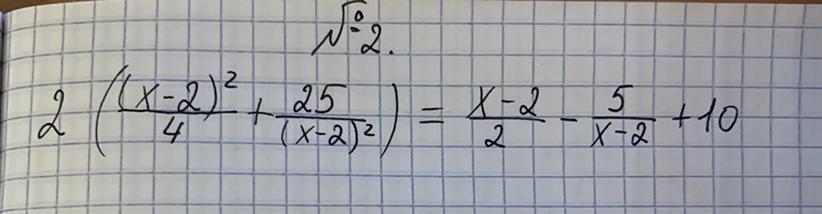 №2.
2 ( (x-2)²/4 + 25/(x-2)² ) = x-2/2 - 5/x-2 + 10